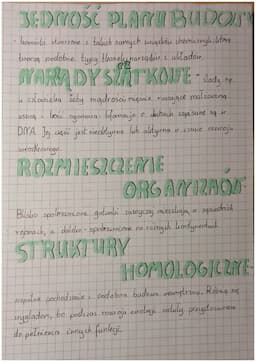 JEDNOŚĆ PLANU BUDOWY
- komórki stworzone z takich samych związków chemicznych, które
tworzą podobne typy tkanek, narządów i układów.
NARZĄDY SZCZĄTKOWE - ślady np.
u człowieka zęby mądrości, mięśnie ruszające małżowiną
uszną, kość ogonowa. Informacje o zapisane są w
DNA. Jej część jest nieaktywna lub aktywna w czasie rozwoju
zarodkowego.
ROZMIESZCZENIE
ORGANIZMÓW
Blisko spokrewnione gatunki zazwyczaj mieszkają w sąsiednich
regionach, a daleko - spokrewnione na różnych kontynentach.
STRUKTURY
HOMOLOGICZNE -
wspólne pochodzenie i podobna budowa wewnętrzna. Różnią się
wyglądem, bo podczas ewolucji zostały przystosowane
do pełnienia innych funkcji.